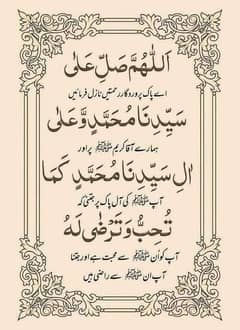 اَللّٰهُمَّ صَلِّ عَلٰی
اے پاک پروردگار رحمتیں نازل فرمائیں
سَيِّدِنَا مُحَمَّدٍ وَّعَلٰی
ہمارے آقا کریم ﷺ پر اور
اٰلِ سَيِّدِنَا مُحَمَّدٍ كَمَا
آپ ﷺ کی آل پاک پر جتنی کہ
تُحِبُّ وَتَرْضٰى لَهٗ
آپ کو اُن ﷺ سے محبت ہے اور جتنا
آپ ان ﷺ سے راضی ہیں